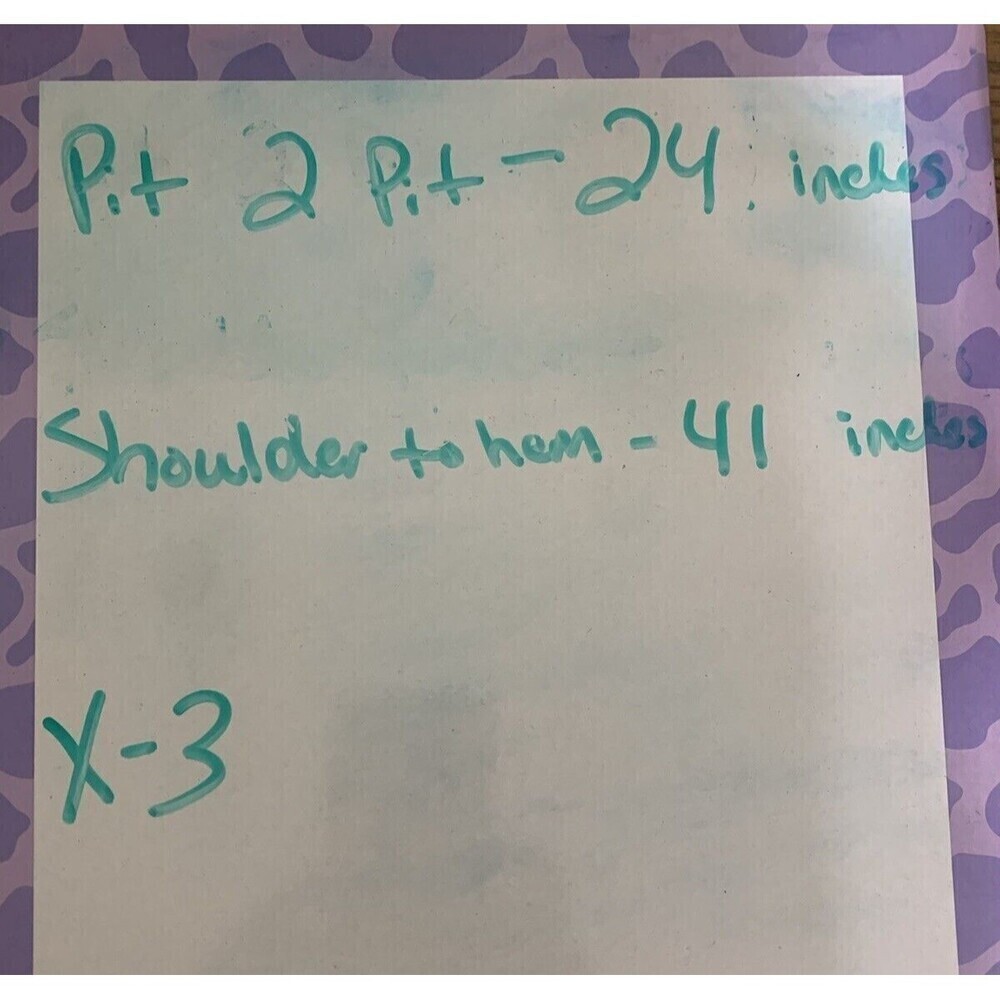 Pit 2 Pit - 24 inches
Shoulder to hem - 41 inches
X-3